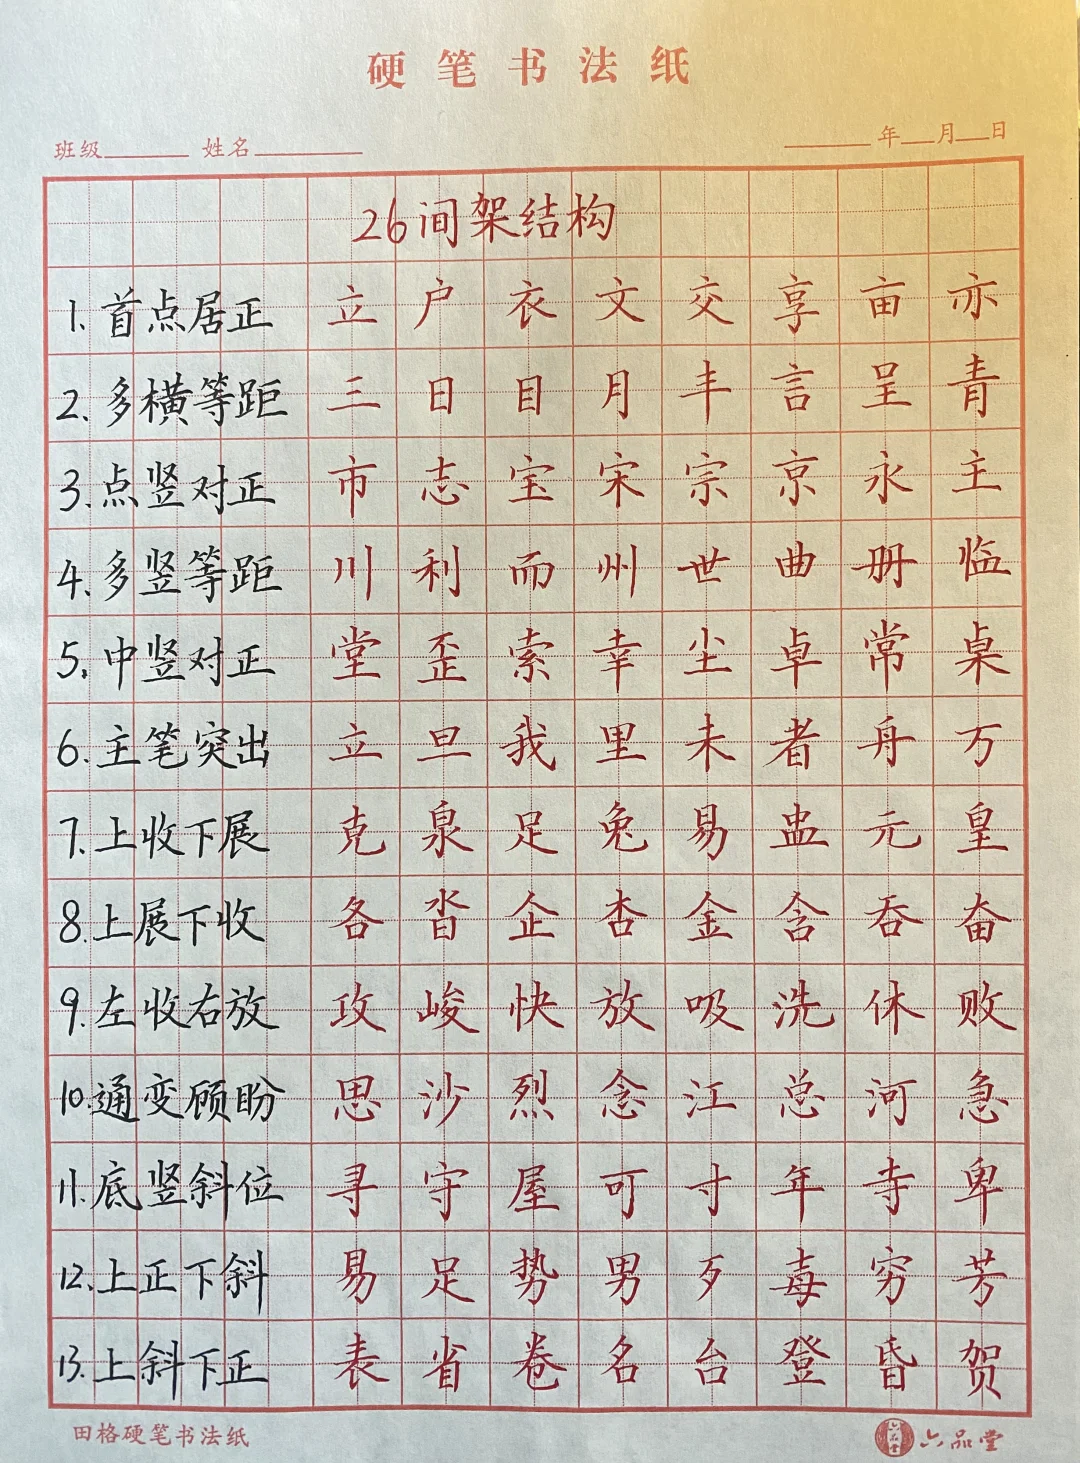 硬笔书法纸
班级 姓名 年 月 日
26间架结构
1. 首点居正 立 户 衣 文 交 享 亩 亦
2. 多横等距 三 日 目 月 丰 言 呈 青
3. 点竖对正 市 志 宝 宋 宗 京 永 主
4. 多竖等距 川 利 而 州 世 曲 册 临
5. 中竖对正 堂 歪 索 幸 尘 卓 常 桌
6. 主笔突出 立 旦 我 里 未 者 舟 万
7. 上收下展 克 泉 足 兔 易 盅 元 皇
8. 上展下收 各 沓 企 杏 金 含 吞 奋
9. 左收右放 攻 峻 快 放 吸 洗 休 败
10. 通变顾盼 思 沙 烈 念 江 总 河 急
11. 底竖斜位 寻 守 屋 可 寸 年 寺 卑
12. 上正下斜 易 足 势 男 歹 毒 穷 芳
13. 上斜下正 表 省 卷 名 台 登 昏 贺
田格硬笔书法纸 六品堂 六品堂